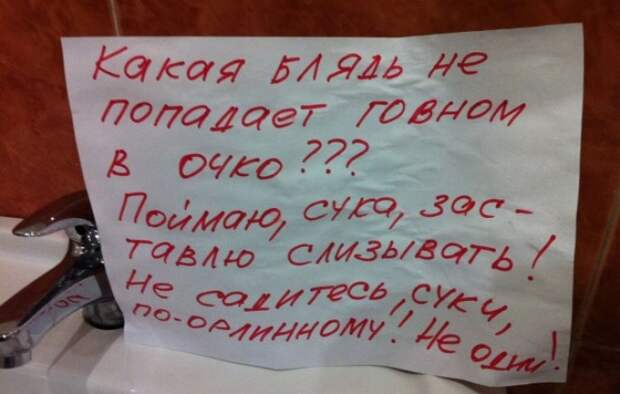 Какая блядь не
попадает говном
в очко???
Поймаю, сука, зас-
тавлю слизывать!
Не садитесь, суки,
по-орлинному! Не одни!